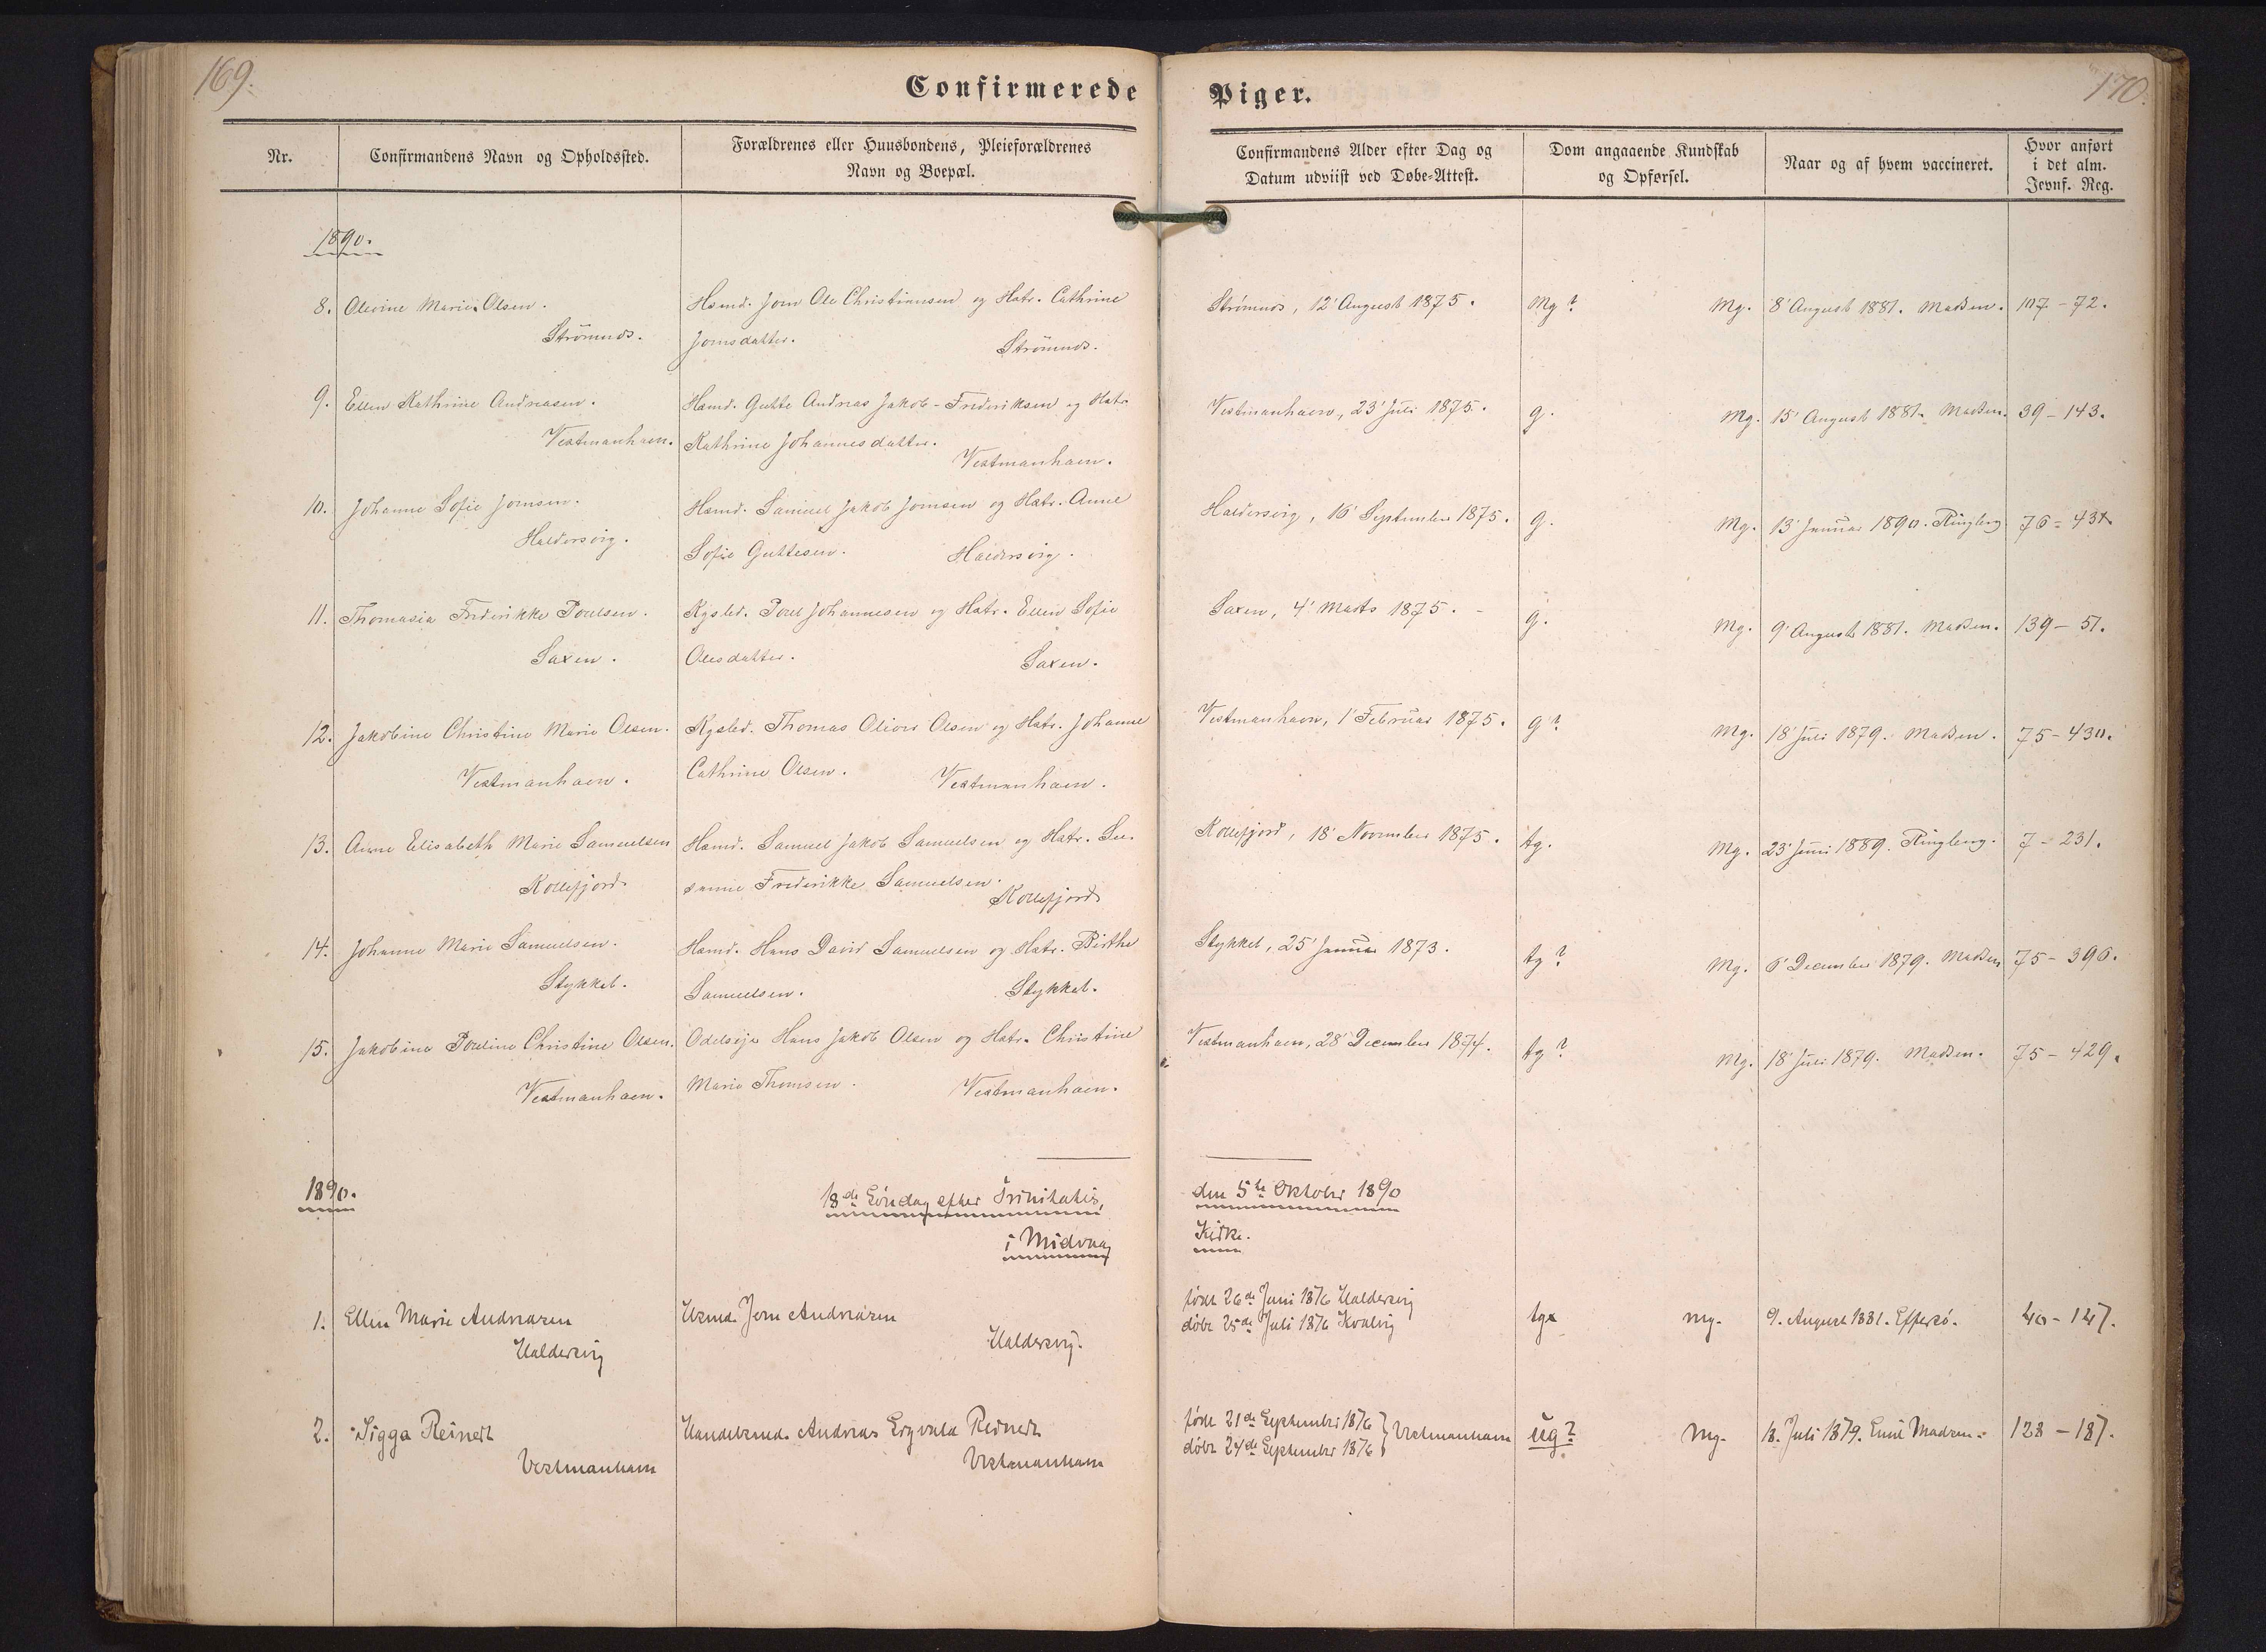 169.
Confirmerede Piger.
170.
Nr.
Confirmandens Navn og Opholdssted.
Forældrenes eller Huusbondens, Pleieforældrenes
Navn og Boepæl.
Confirmandens Alder efter Dag og
Datum udviist ved Døbe-Attest.
Dom angaaende Kundskab
og Opførsel.
Naar og af hvem vaccineret.
Hvor anført
i det alm.
Jevnf. Reg.
1890.
8. Olevine Marie Olsen. Hsmd. Joen Ole Christiansen og Hstr. Cathrine Strömnæs, 12' August 1875. Mg? Mg. 8' August 1881. Madsen. 107-72.
Strömnæs. Joensdatter. Strömnæs.
9. Ellen Kathrine Andreasen. Hsmd. Gutte Andreas Jakob-Frederiksen og Hstr. Vestmanhavn, 23' Juli 1875. g. Mg. 15' August 1881. Madsen. 39-143.
Vestmanhavn. Kathrine Johannesdatter. Vestmanhavn.
10. Johanne Sofie Joensen. Hsmd. Samuel Jakob Joensen og Hstr. Anne Haldersvig, 16' September 1875. g. Mg. 13' Januar 1890. Ringberg 76-431
Haldersvig. Sofie Guttesen. Haldersvig.
11. Thomasia Frederikke Poulsen. Kgsled. Poul Johannesen og Hstr. Ellen Sofie Saxen, 4' Marts 1875. g. Mg. 9' August 1881. Madsen. 139-51.
Saxen. Olesdatter. Saxen.
12. Jakobine Christine Marie Olsen. Kgsled. Thomas Oliver Olsen og Hstr. Johanne Vestmanhavn, 1' Februar 1875. g? Mg. 18' Juli 1879. Madsen. 75-430.
Vestmanhavn. Cathrine Olsen. Vestmanhavn.
13. Anne Elisabeth Marie Samuelsen Hsmd. Samuel Jakob Samuelsen og Hstr. Su- Kollefjord, 18' November 1875. tg. Mg. 23' Juni 1889. Ringberg. 7-231.
Kollefjord sanne Frederikke Samuelsen. Kollefjord
14. Johanne Marie Samuelsen. Hsmd. Hans David Samuelsen og Hstr. Birthe Stykket, 25' Januar 1873. tg? Mg. 6' December 1879. Madsen 75-396.
Stykket. Samuelsen. Stykket.
15. Jakobine Pouline Christine Olsen. Odelseje Hans Jakob Olsen og Hstr. Christine Vestmanhavn, 28' December 1874. tg? Mg. 18' Juli 1879. Madsen. 75-429.
Vestmanhavn. Marie Thomsen. Vestmanhavn.
1890. 18de Söndag efter Trinitatis, den 5te Oktober 1890
i Midvaag Kirke.
født 26de Juni 1876 Haldersvig
1. Ellen Marie Andreasen Hsmd. Joen Andreasen døbt 25de Juli 1876 Kvalvig tg× mg. 9. August 1881. Effersö. 40-147.
Haldersvig Haldersvig.
født 21de September 1876
2. Sigga Reinert Handelsmd. Andreas Reinert døbt 24de September 1876 Vestmanhavn ug? mg. 18. Juli 1879. Emil Madsen. 128-187.
Vestmanhavn Vestmanhavn